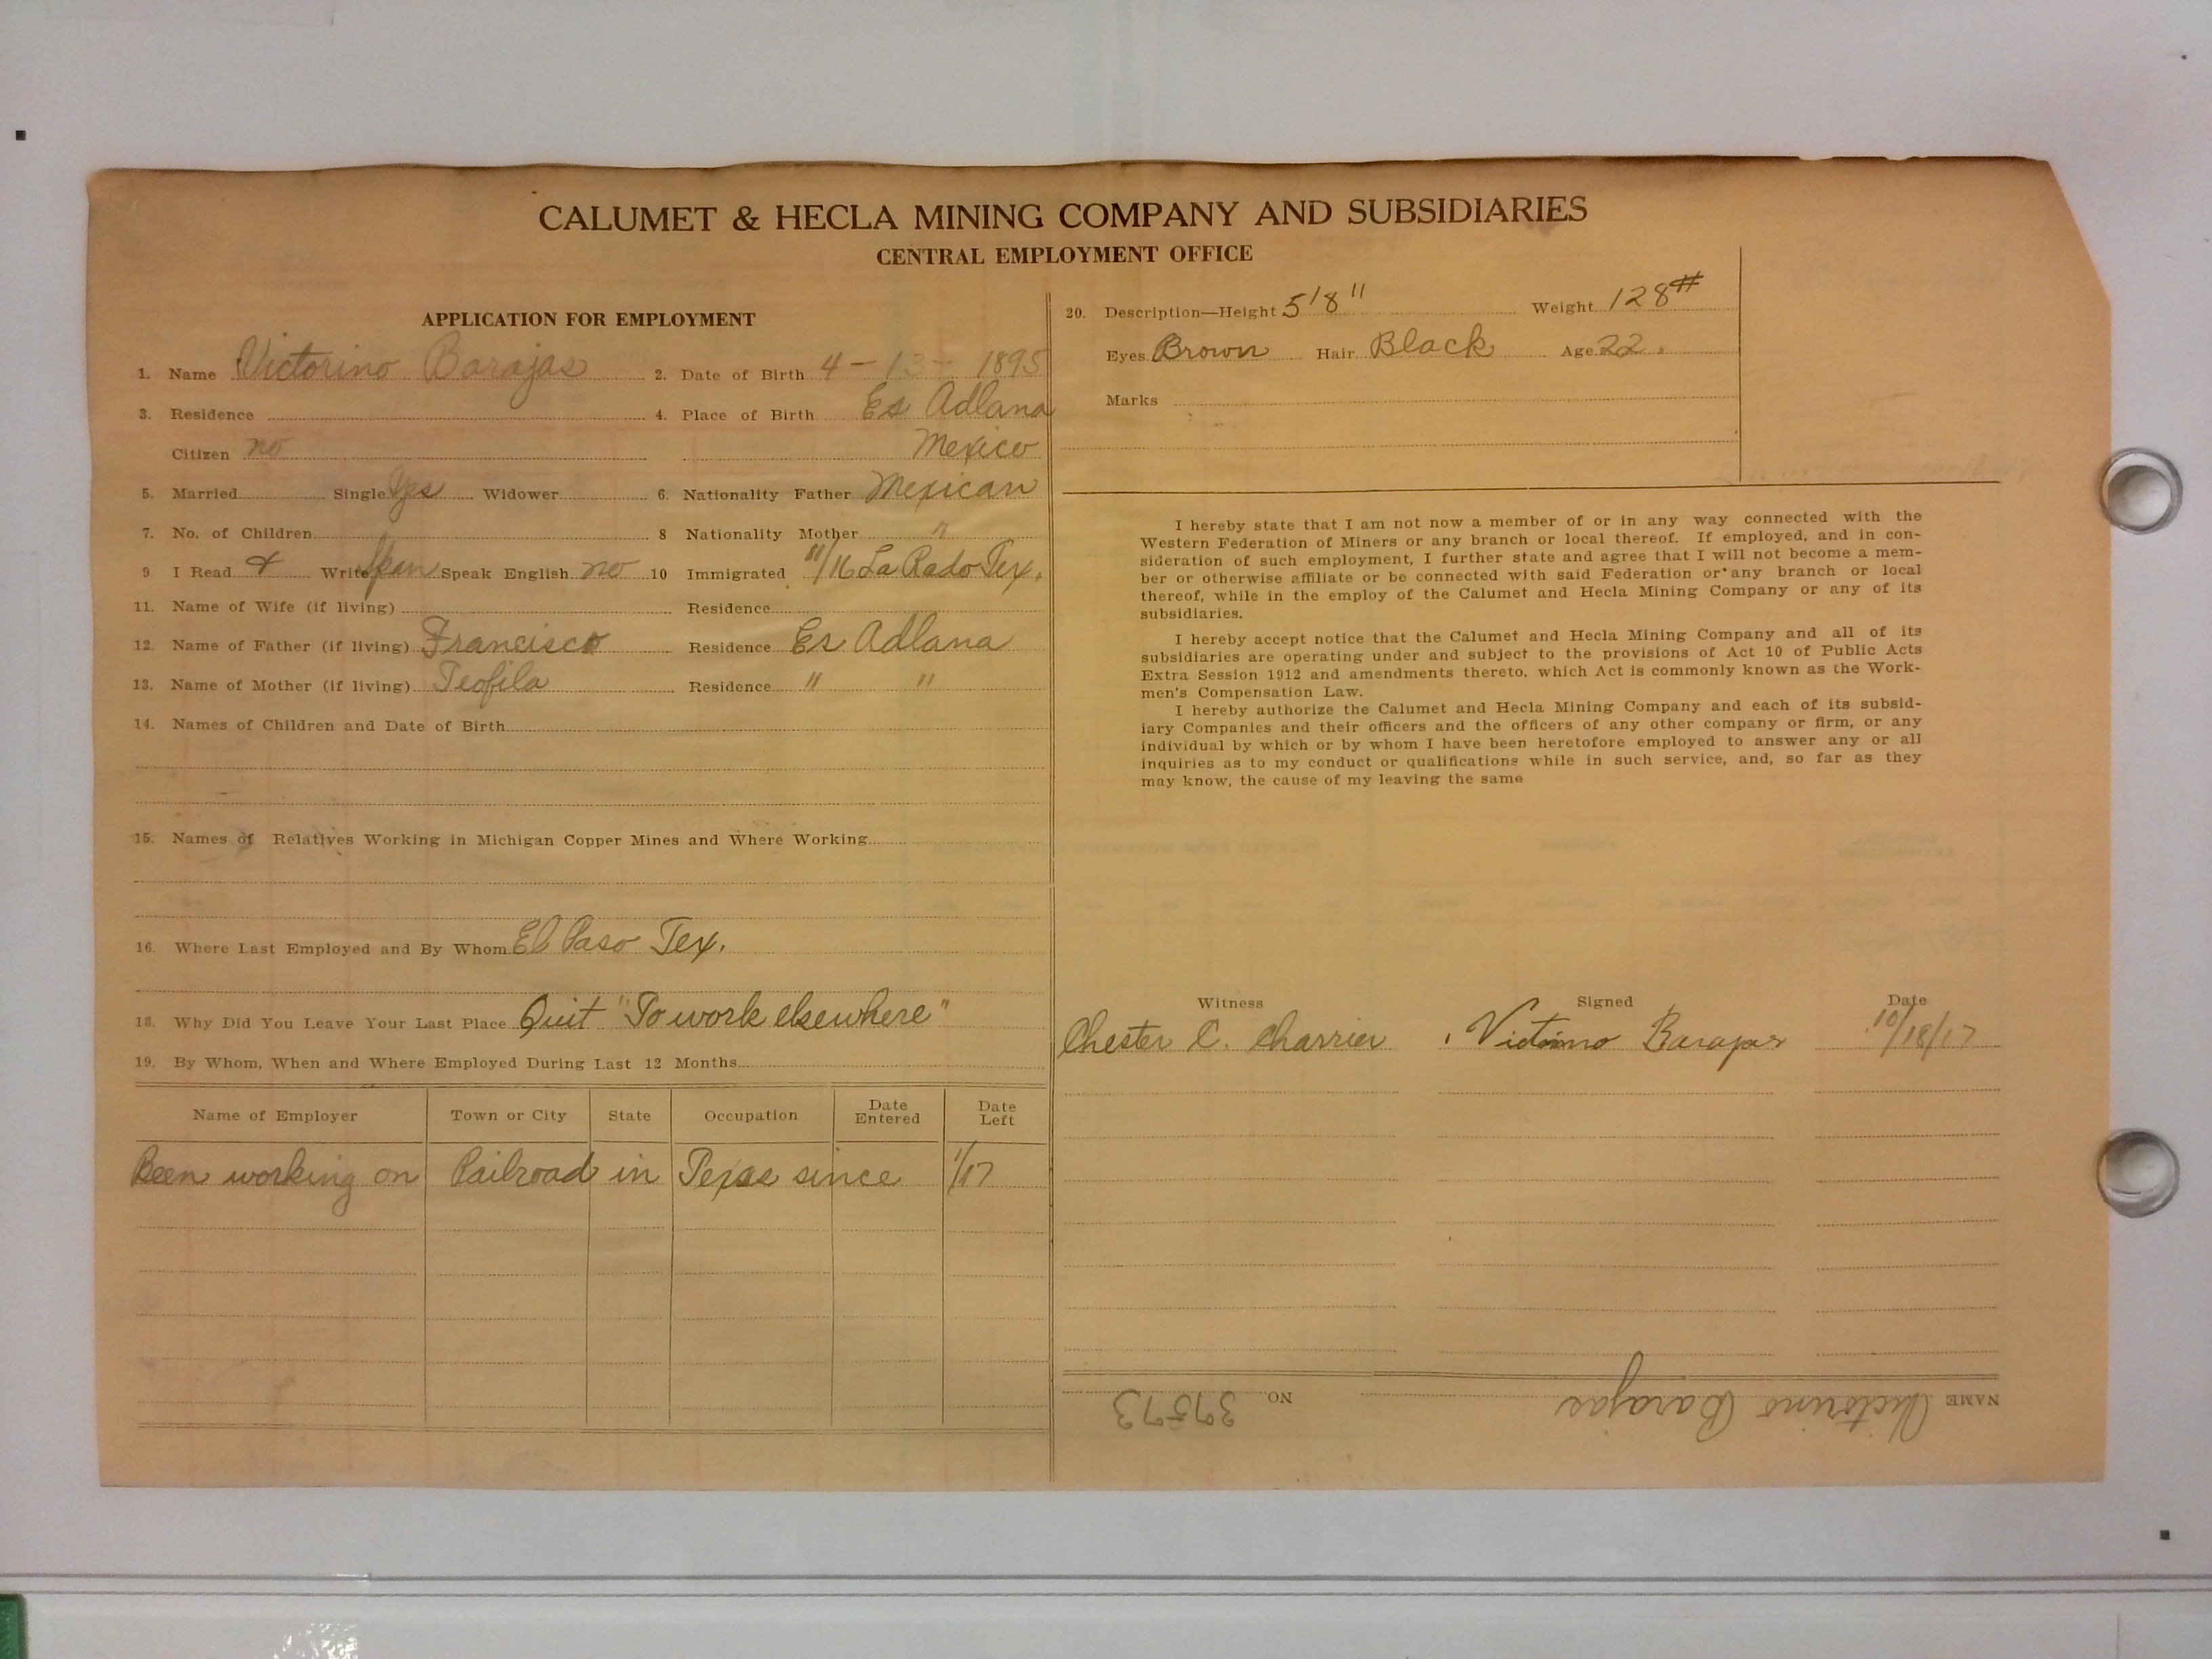 CALUMET & HECLA MINING COMPANY AND SUBSIDIARIES
CENTRAL EMPLOYMENT OFFICE
APPLICATION FOR EMPLOYMENT
1. Name Victorino Barajas 2. Date of Birth 4-13-1895
3. Residence 4. Place of Birth Es Adlana
Citizen no Mexico
5. Married Single Yes Widower 6. Nationality Father Mexican
7. No. of Children 8 Nationality Mother "
9 I Read & Write Span Speak English no 10 Immigrated 11/16 La Rado Tex.
11. Name of Wife (if living) Residence
12. Name of Father (if living) Francisco Residence Es Adlana
13. Name of Mother (if living) Teofila Residence " "
14. Names of Children and Date of Birth
15. Names of Relatives Working in Michigan Copper Mines and Where Working
16. Where Last Employed and By Whom El Paso Tex.
18. Why Did You Leave Your Last Place Quit "To work elsewhere"
19. By Whom, When and Where Employed During Last 12 Months
Name of Employer Town or City State Occupation Date Entered Date Left
Been working on Railroad in Texas since 1/17
20. Description—Height 5'8" Weight 128#
Eyes Brown Hair Black Age 22.
Marks
I hereby state that I am not now a member of or in any way connected with the
Western Federation of Miners or any branch or local thereof. If employed, and in con-
sideration of such employment, I further state and agree that I will not become a mem-
ber or otherwise affiliate or be connected with said Federation or any branch or local
thereof, while in the employ of the Calumet and Hecla Mining Company or any of its
subsidiaries.
I hereby accept notice that the Calumet and Hecla Mining Company and all of its
subsidiaries are operating under and subject to the provisions of Act 10 of Public Acts
Extra Session 1912 and amendments thereto, which Act is commonly known as the Work-
men's Compensation Law.
I hereby authorize the Calumet and Hecla Mining Company and each of its subsid-
iary Companies and their officers and the officers of any other company or firm, or any
individual by which or by whom I have been heretofore employed to answer any or all
inquiries as to my conduct or qualifications while in such service, and, so far as they
may know, the cause of my leaving the same
Witness Signed Date
Chester C. Charrier Victorino Barajas 10/18/17
NAME Victorino Barajas NO 39573